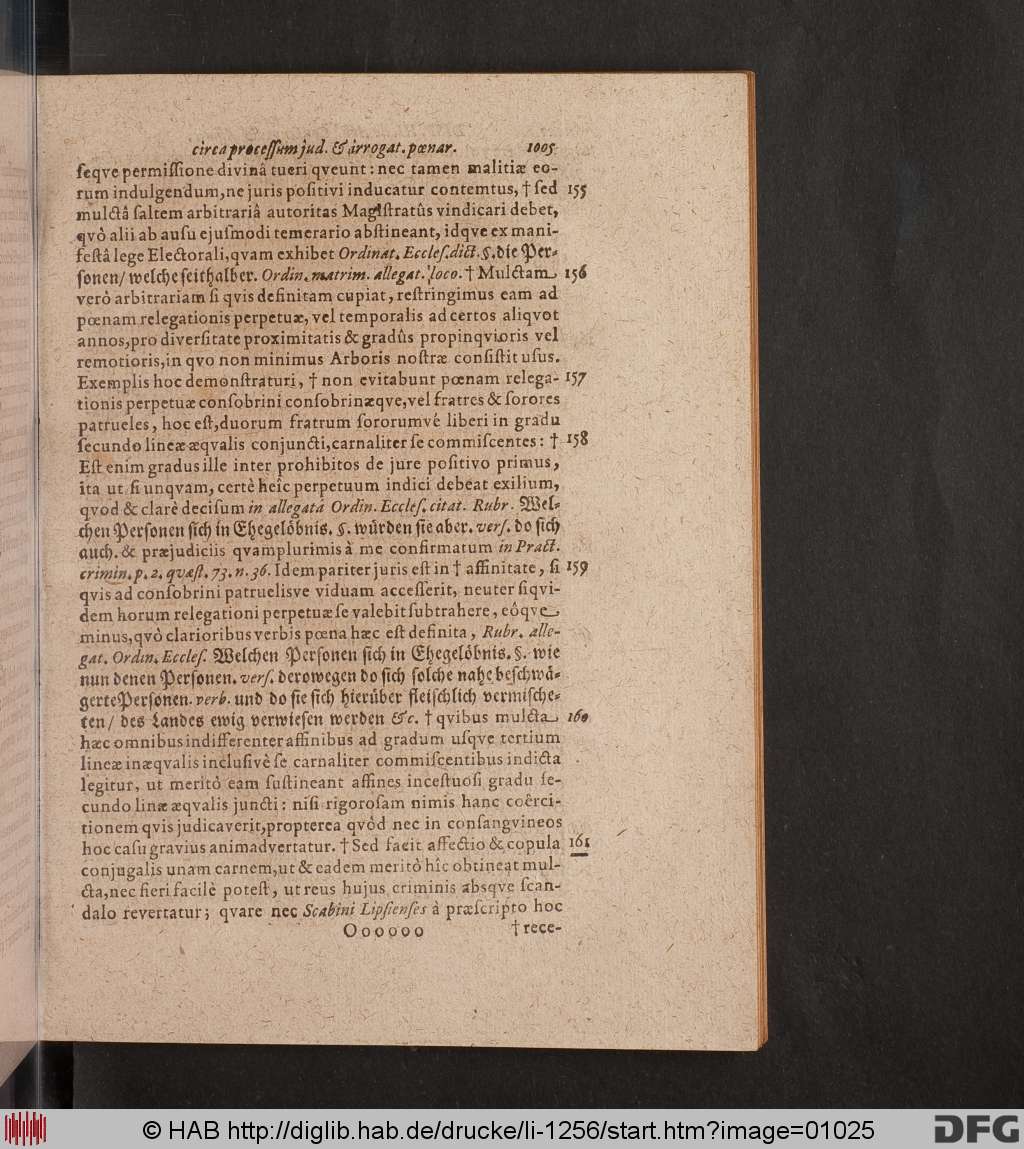 circa processum jud. & arrogat. pœnar. 1005
seqve permissione divinâ tueri qveunt: nec tamen malitiæ eo-
rum indulgendum, ne juris positivi inducatur contemtus, † sed 155
mulctâ saltem arbitrariâ autoritas Magistratûs vindicari debet,
qvò alii ab ausu ejusmodi temerario abstineant, idqve ex mani-
festâ lege Electorali, qvam exhibet Ordinat. Eccles. dict. §. die Per-
sonen/ welche seithalber. Ordin. matrim. allegat. loco. † Mulctam 156
verò arbitrariam si qvis definitam cupiat, restringimus eam ad
pœnam relegationis perpetuæ, vel temporalis ad certos aliqvot
annos, pro diversitate proximitatis & gradûs propinqvioris vel
remotioris, in qvo non minimus Arboris nostræ consistit usus.
Exemplis hoc demonstraturi, † non evitabunt pœnam relega- 157
tionis perpetuæ consobrini consobrinæqve, vel fratres & sorores
patrueles, hoc est, duorum fratrum sororumvé liberi in gradu
secundo lineæ æqvalis conjuncti, carnaliter se commiscentes: † 158
Est enim gradus ille inter prohibitos de jure positivo primus,
ita ut si unqvam, certè heîc perpetuum indici debeat exilium,
qvod & clarè decisum in allegatâ Ordin. Eccles. citat. Rubr. Wel-
chen Personen sich in Ehegelöbnis. §. würden sie aber. vers. do sich
auch. & præjudiciis qvamplurimis à me confirmatum in Pract.
crimin. p. 2. quæst. 73. n. 36. Idem pariter juris est in † affinitate, si 159
qvis ad consobrini patruelisve viduam accesserit, neuter siqvi-
dem horum relegationi perpetuæ se valebit subtrahere, eôqve
minus, qvò clarioribus verbis pœna hæc est definita, Rubr. alle-
gat. Ordin. Eccles. Welchen Personen sich in Ehegelöbnis. §. wie
nun denen Personen. vers. derowegen do sich solche nahe beschwä-
gerte Personen. verb. und do sie sich hierüber fleischlich vermische-
ten/ des Landes ewig verwiesen werden &c. † qvibus mulcta 160
hæc omnibus indifferenter affinibus ad gradum usqve tertium
lineæ inæqvalis inclusivè se carnaliter commiscentibus indicta
legitur, ut meritò eam sustineant affines incestuosi gradu se-
cundo linæ æqvalis juncti: nisi rigorosam nimis hanc coërci-
tionem qvis judicaverit, propterea qvòd nec in consangvineos
hoc casu gravius animadvertatur. † Sed facit affectio & copula 161
conjugalis unam carnem, ut & eadem meritò hîc obtineat mul-
cta, nec fieri facilè potest, ut reus hujus criminis absqve scan-
dalo revertatur; qvare nec Scabini Lipsienses à præscripto hoc
Oooooo † rece-
© HAB http://diglib.hab.de/drucke/li-1256/start.htm?image=01025
DFG